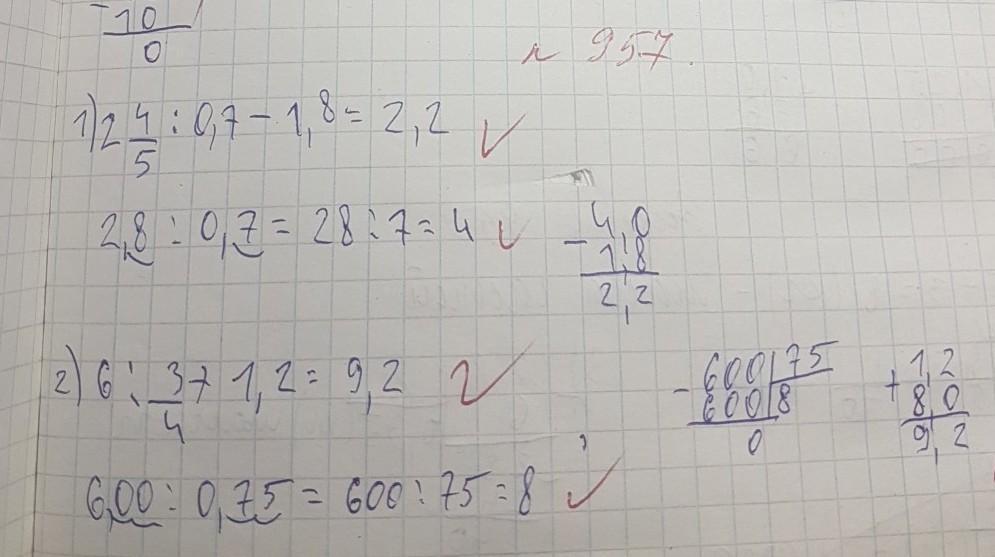 - 10
0
№ 957.
1) 2 4/5 : 0,7 - 1,8 = 2,2
2,8 : 0,7 = 28 : 7 = 4
- 4,0
1,8
2,2
2) 6 : 3/4 + 1,2 = 9,2
- 600 | 75
600 | 8
0
+ 1,2
8,0
9,2
6,00 : 0,75 = 600 : 75 = 8